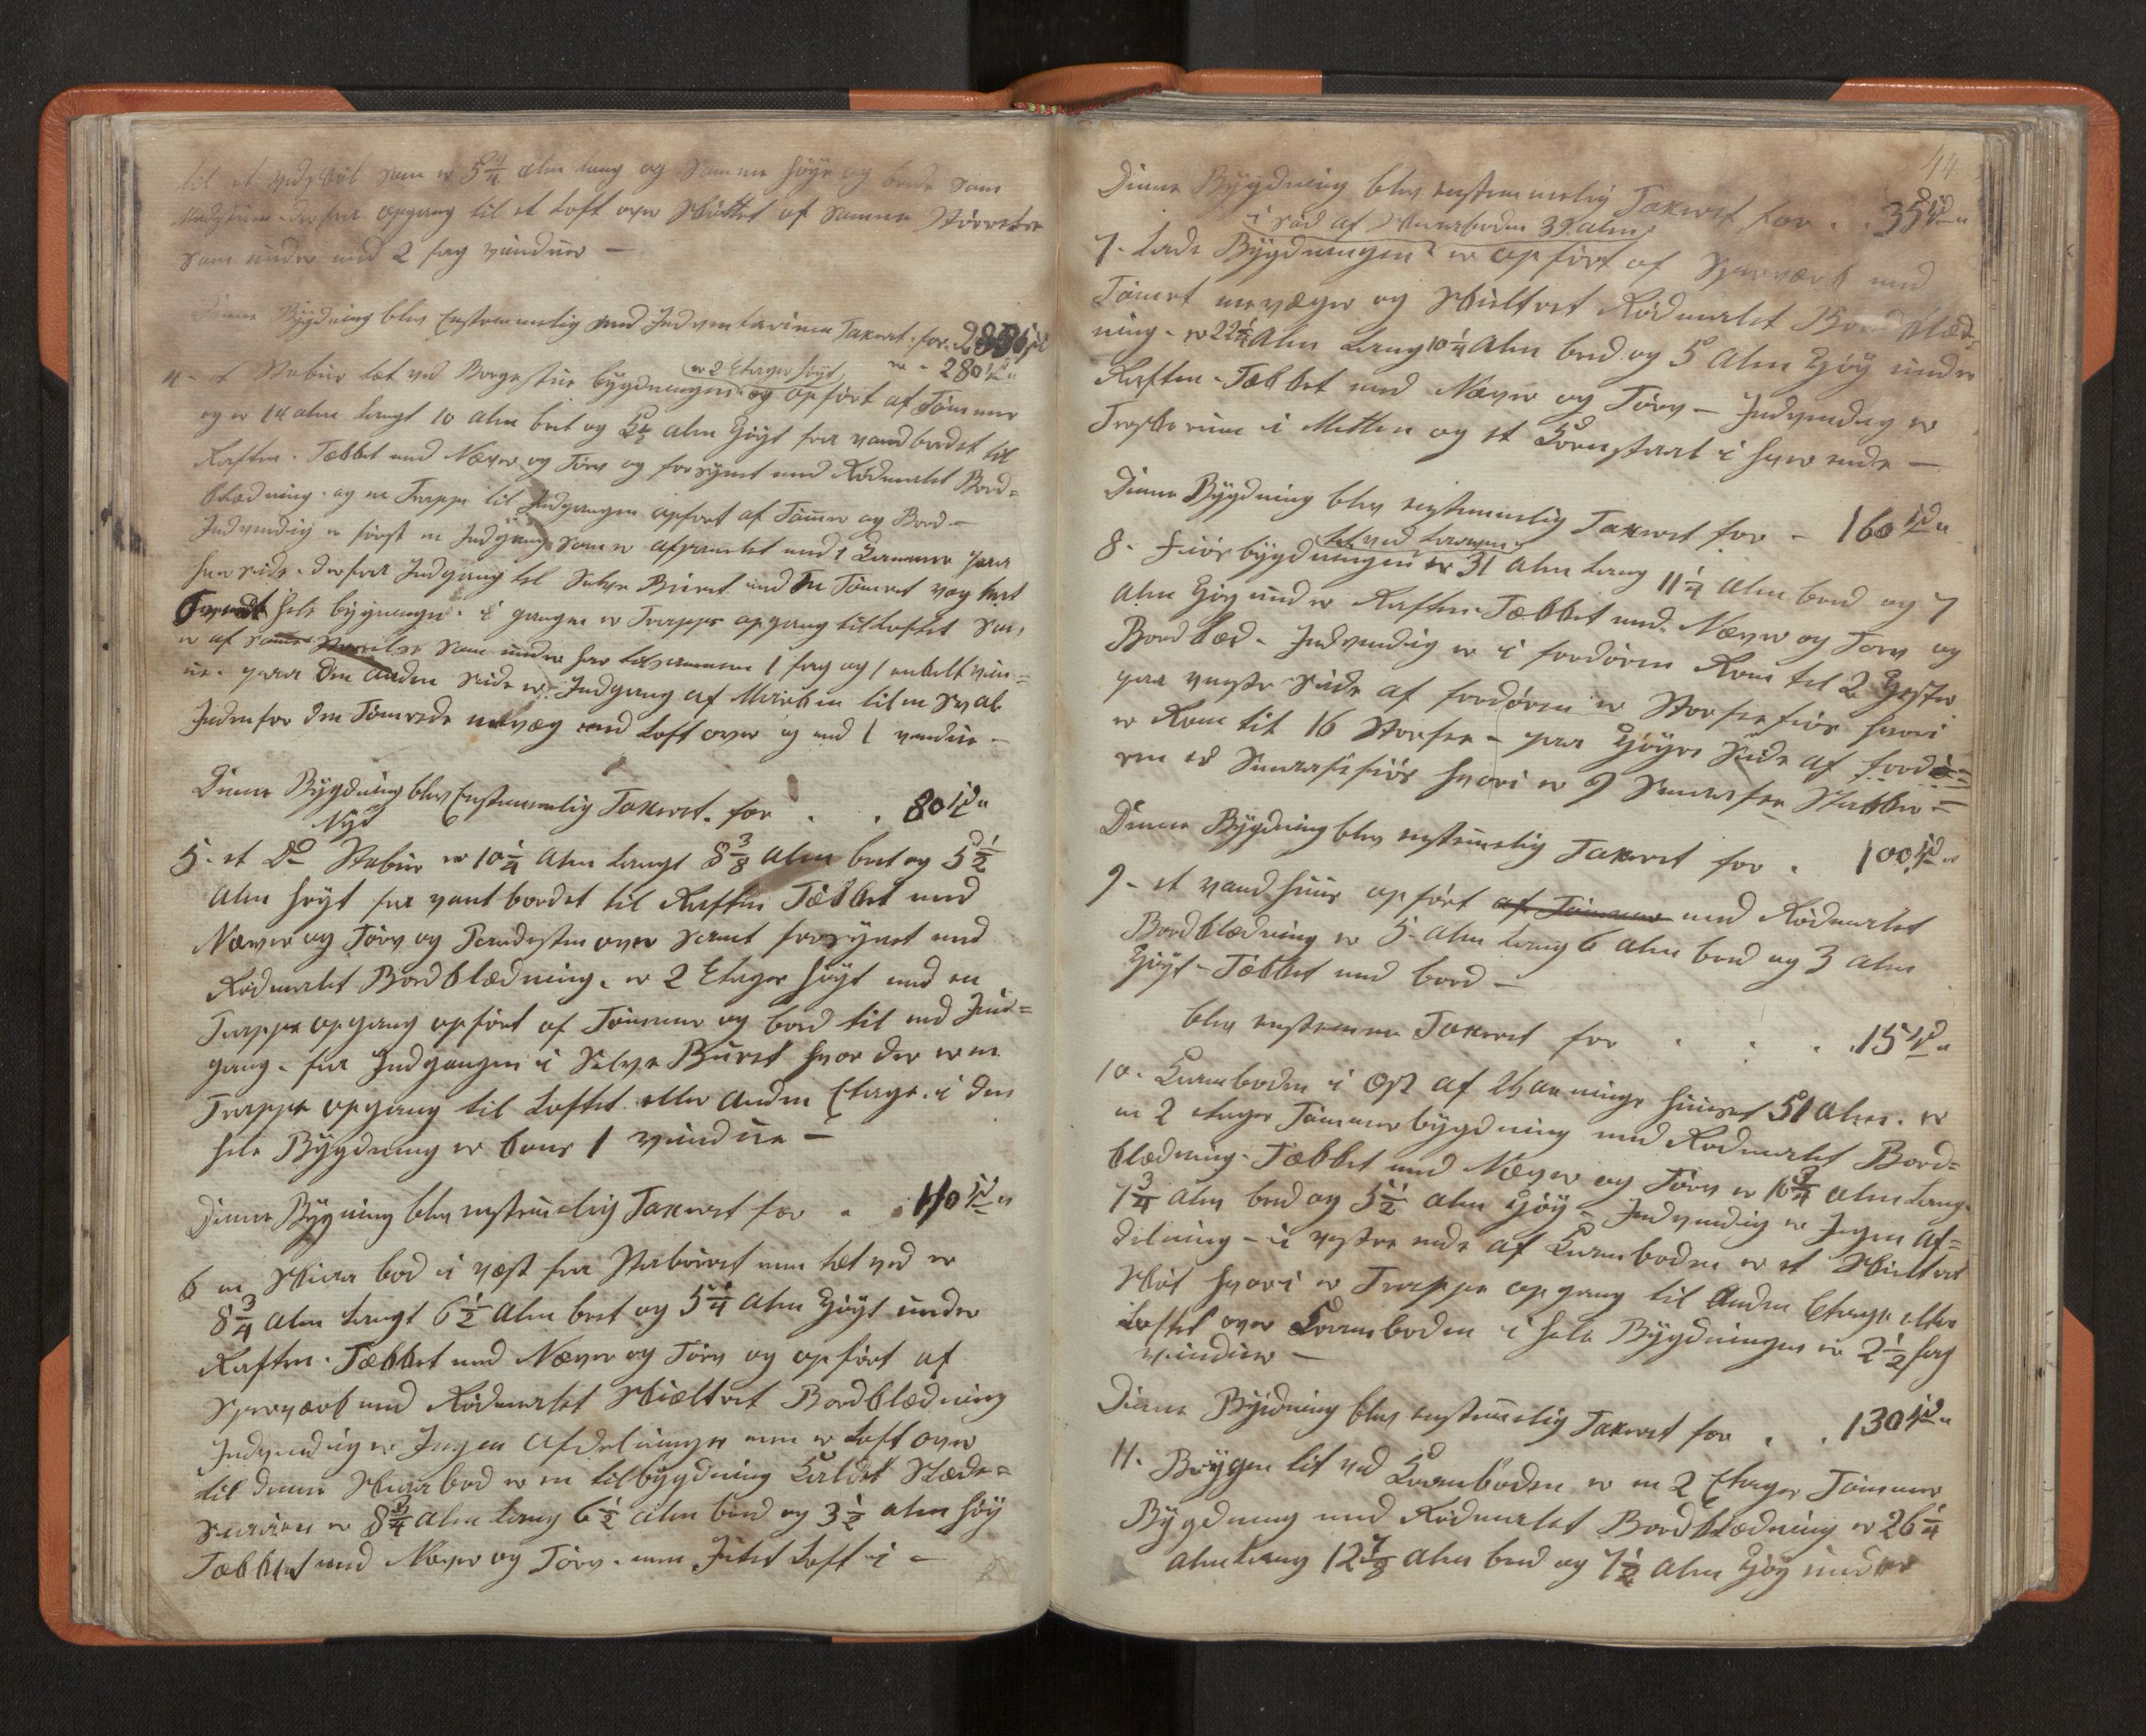 til et som er 5 3/4 alen lang og samme høye og brede som
opgang til et Loft over Skuttet af samme Størrelse
som under med 2 fag vinduer —
Denne Bygdning blev Enstemmelig med Indventarium Taxeret. for.
er 2 Etager høyt
280 Spd "
4 - et Stabur tæt ved Borgestue bygdningen og opført af Tømmer
og er 14 alen Langt 10 alen bret og 5½ alen Høyt fra vandbordet til
Raften. Tækket med Næver og Törv og forsÿnet med Rödmalet Bord=
klædning. og en Trappe til Indgangen opført af Tömer og Bord —
Indvendig er först en Indgang som er afpanelet med 1 Kammer paa
hver side. derfra Indgang til Selve Buret med En Tömret væg tvert
hele bygningen. i gangen er Trappe opgang til Loftet som
er af samme Störrelse som under har tilsammen 1 fag og 1 enkelt vin=
ue. paa den anden side er Indgang af Marken til en Sval
Indenfor den Tömrede væg med Loft over og med 1 vindue —
Denne Bÿgdning blev Enstemmelig Taxeret. for . . 80 Spd "
Nÿe
5 - et Do Stabur er 10¼ Alen Langt 8 3/8 Alen bret og 5½
Alen höyt fra vant bordet til Raften Tækket med
Næver og Törv og over samt forsÿnet med
Rödmalet Bordklædning. er 2 Etager höyt med en
Trappe opgang opfört af Tömmer og bord til ved Ind=
gang. fra Indgangen i Selve Buret hvor der er en
Trappe opgang til Loftet eller Anden Etage. i den
hele Bÿgdning er kuns 1 vindue —
Denne Bÿgning blev enstemelig Taxeret for . . 110 Spd "
6 en Skiaa bod i væst fra Staburet men tæt ved er
8¾ Alen Langt 6½ Alen bret og 5¼ Alen Höyt under
Raften. Tækket med Næver og Törv og opfört af
Sperværk med Rödmalet Skiæltret Bordklædning
Indvendig er Ingen Afdelninger men er Loft over
til denne Skiaabod er en tilbÿgdning Kaldet Slæde=
er 8¾ Alen Lang 6½ Alen bred og 3½ alen höÿ
Tækket med Næver og Törv. men Intet Loft i —
44
Denne Bÿgdning blev enstemmelig Taxeret for . . 35 Spd "
i Süd af Skiaaboden 39 alen
7 - Lade Bÿgdningen er opfört af Sperværk med
Tömret og Skieltret Rödmalet Bordklæd=
ning - er 22¼ Alen Lang 10¼ Alen bred og 5 Alen Höÿ under
Raften - Tækket med Næver og Törv — Indvendig er
Treskerum i Mitten og et Kornstaal i hver ende —
Denne Bÿgdning blev enstemmelig Taxeret for - 160 Spd "
tæt ved Laaven
8 - Fiös bÿgdningen er 31 Alen Lang 11¼ Alen bred og 7
Alen Höÿ under Raften. Tækket med Næver og Törv og
Bord klæd - Indvendig er i fordören Rom til 2 Hester
paa venstre Side af fordören er Storfæ fiös hvori
er Rom til 16 Storfæ - paa Höÿre Side af fordö=
ren er Smaafæfiös hvori er 9 Smaafæ Stakker —
Denne Bÿgdning blev enstemelig Taxeret for . 100 Spd "
9 - et vand huus opfört af Tömmer med Rödmalet
Bordklædning er 5 - Alen Lang 6 Alen bred og 3 Alen
Höyt - Tækket med bord —
blev enstemme Taxeret for . . . 15 Spd "
10 - Kramboden i Ost af Vaaninge huuset 51 Alen. er
en 2 etager Tömmerbÿgdning med Rödmalet Bord=
klædning. Tækket med Næver og Törv er 16¾ alen Lang
7¾ Alen bred og 5½ Alen Höÿ - Indvendig er Ingen Af=
delning - i vestre ende af Kramboden er et Skieltret
Skot hvori er Trappe opgang til Anden Etage eller
Loftet over Kramboden i hele Bÿgdningen er 2½ fag
vinduer —
Denne Bÿgdning blev enstemmelig Taxeret for . . 130 Spd "
11. Brÿgen tæt ved Kramboden er en 2 Etager Tömmer
Bÿgdning med Rödmalet Bordklædning er 26¼
Alen Lang 12 7/8 Alen bred og 7½ Alen Höÿ under